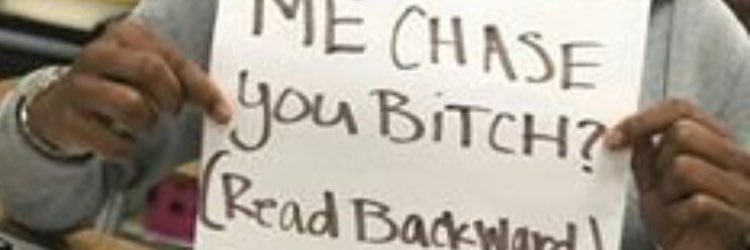 ME CHASE
you BiTCH?
(Read Backward)